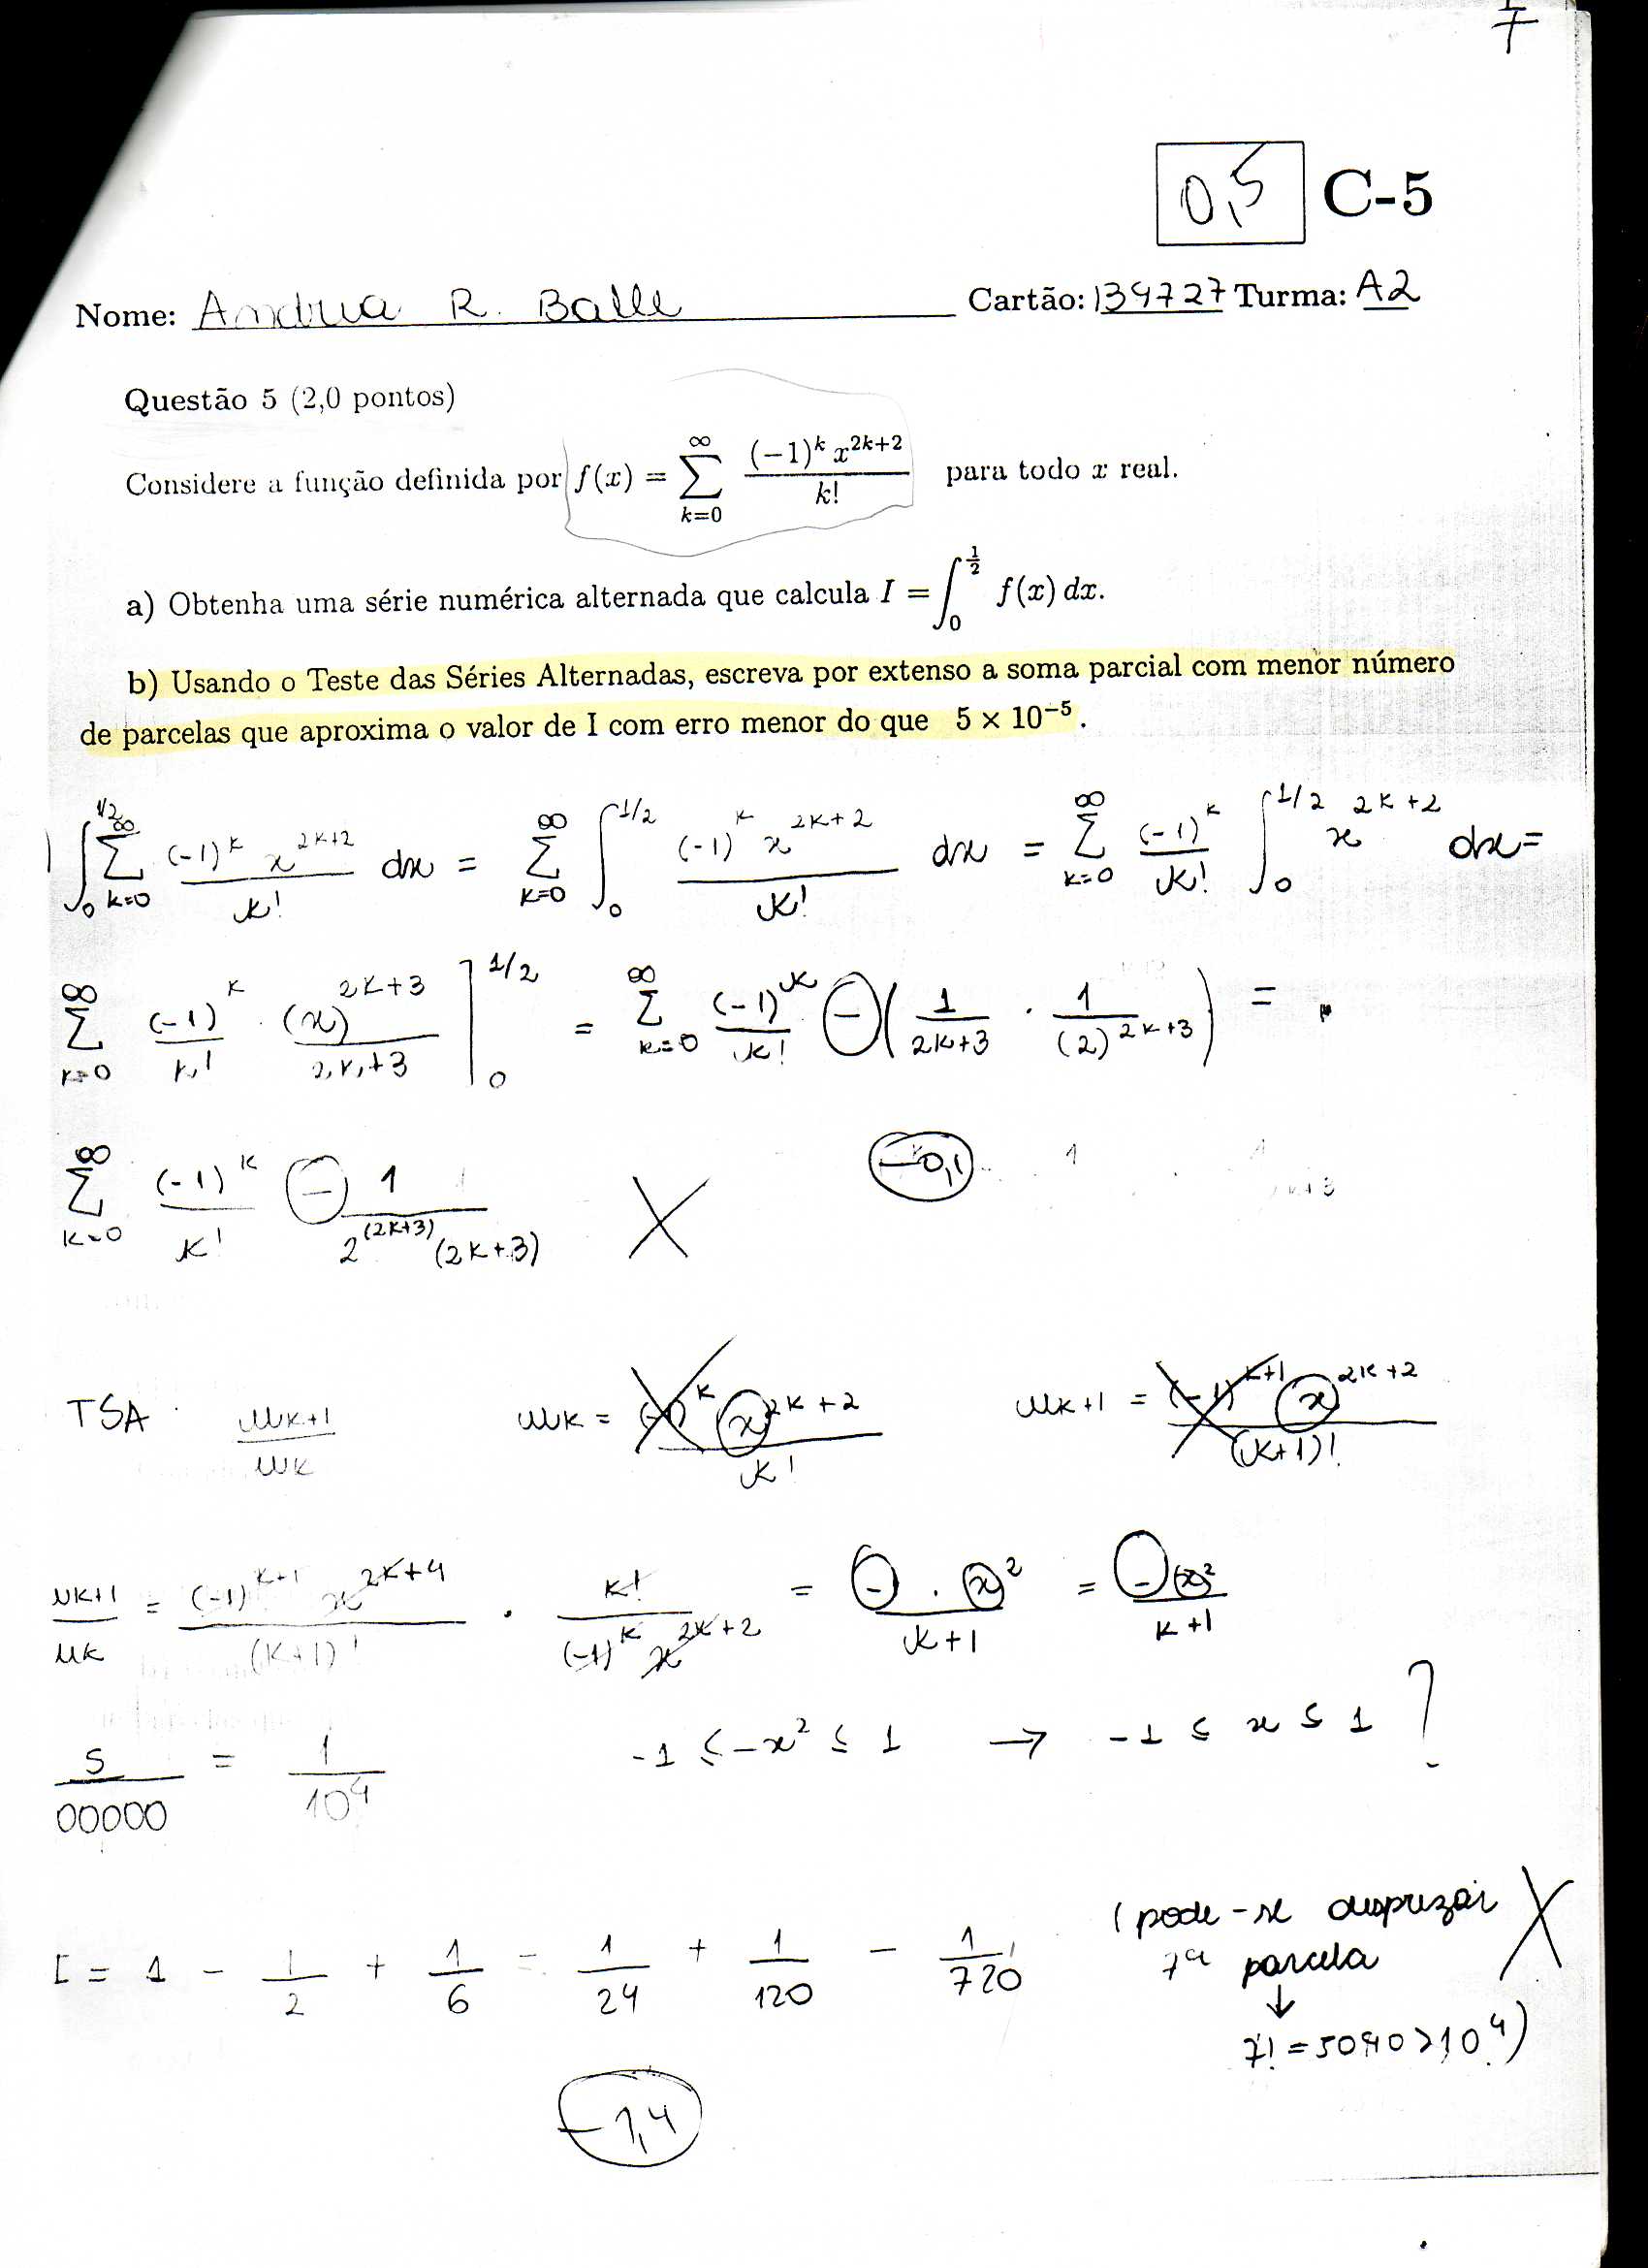 0,5 C-5
Nome: Andrea R. Balle Cartão: 139727 Turma: A2
Questão 5 (2,0 pontos)
Considere a função definida por f(x) = ∑_{k=0}^{∞} (-1)^k x^{2k+2} / k! para todo x real.
a) Obtenha uma série numérica alternada que calcula I = ∫_0^{1/2} f(x) dx.
b) Usando o Teste das Séries Alternadas, escreva por extenso a soma parcial com menor número
de parcelas que aproxima o valor de I com erro menor do que 5 × 10^{-5}.
∫_0^{1/2} ∑_{k=0}^{∞} (-1)^k x^{2k+2} / k! dx = ∑_{k=0}^{∞} ∫_0^{1/2} (-1)^k x^{2k+2} / k! dx = ∑_{k=0}^{∞} (-1)^k / k! ∫_0^{1/2} x^{2k+2} dx =
∑_{k=0}^{∞} (-1)^k / k! · (x)^{2k+3} / 2k+3 ]_0^{1/2} = ∑_{k=0}^{∞} (-1)^k / k! - ( 1 / 2k+3 · 1 / (2)^{2k+3} ) =
∑_{k=0}^{∞} (-1)^k / k! - 1 / 2^{(2k+3)} (2k+3) -0,1
TSA uk+1 / uk uk = (-1)^k x^{2k+2} / k! uk+1 = (-1)^{k+1} x^{2k+2} / (k+1)!
uk+1 / uk = (-1)^{k+1} x^{2k+4} / (k+1)! · k! / (-1)^k x^{2k+2} = - · x^2 / k+1 = - x^2 / k+1
5 / 00000 = 1 / 10^4 -1 ≤ -x^2 ≤ 1 → -1 ≤ x ≤ 1 ?
I = 1 - 1/2 + 1/6 - 1/24 + 1/120 - 1/720 (pode-se desprezar
7ª parcela
↓
7! = 5040 > 10^4)
-1,4